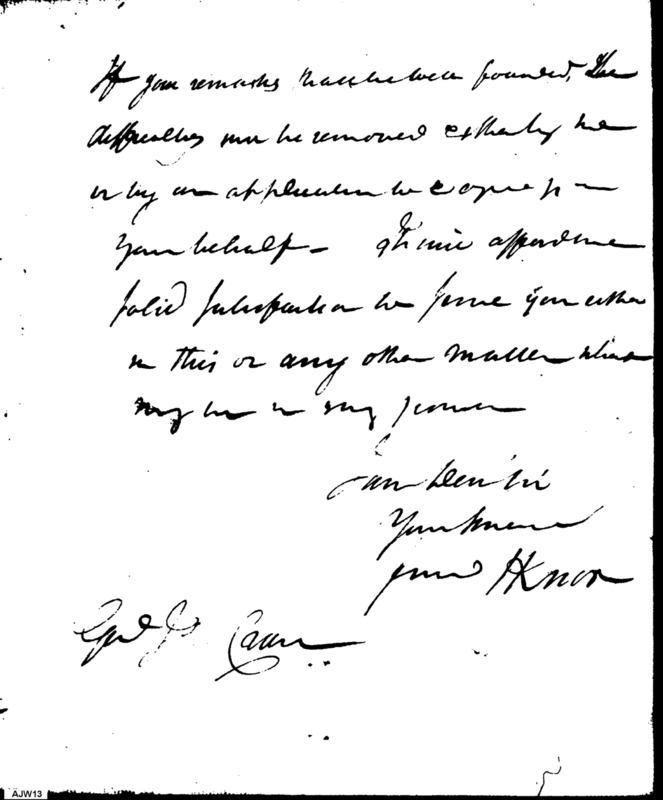 If your remarks have been well founded, the
difficulties may be removed either by me
or by an application to Congress in
Your behalf – It will afford me
solid satisfaction to serve you either
in this or any other matter which
may be in my power
I am Dear Sir
Your sincere
friend HKnox
Genl
AJW13